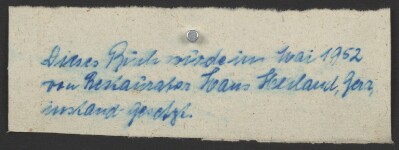 Dieses Buch wurde im Mai 1952
von Restaurator Hans Heiland,
instand gesetzt.